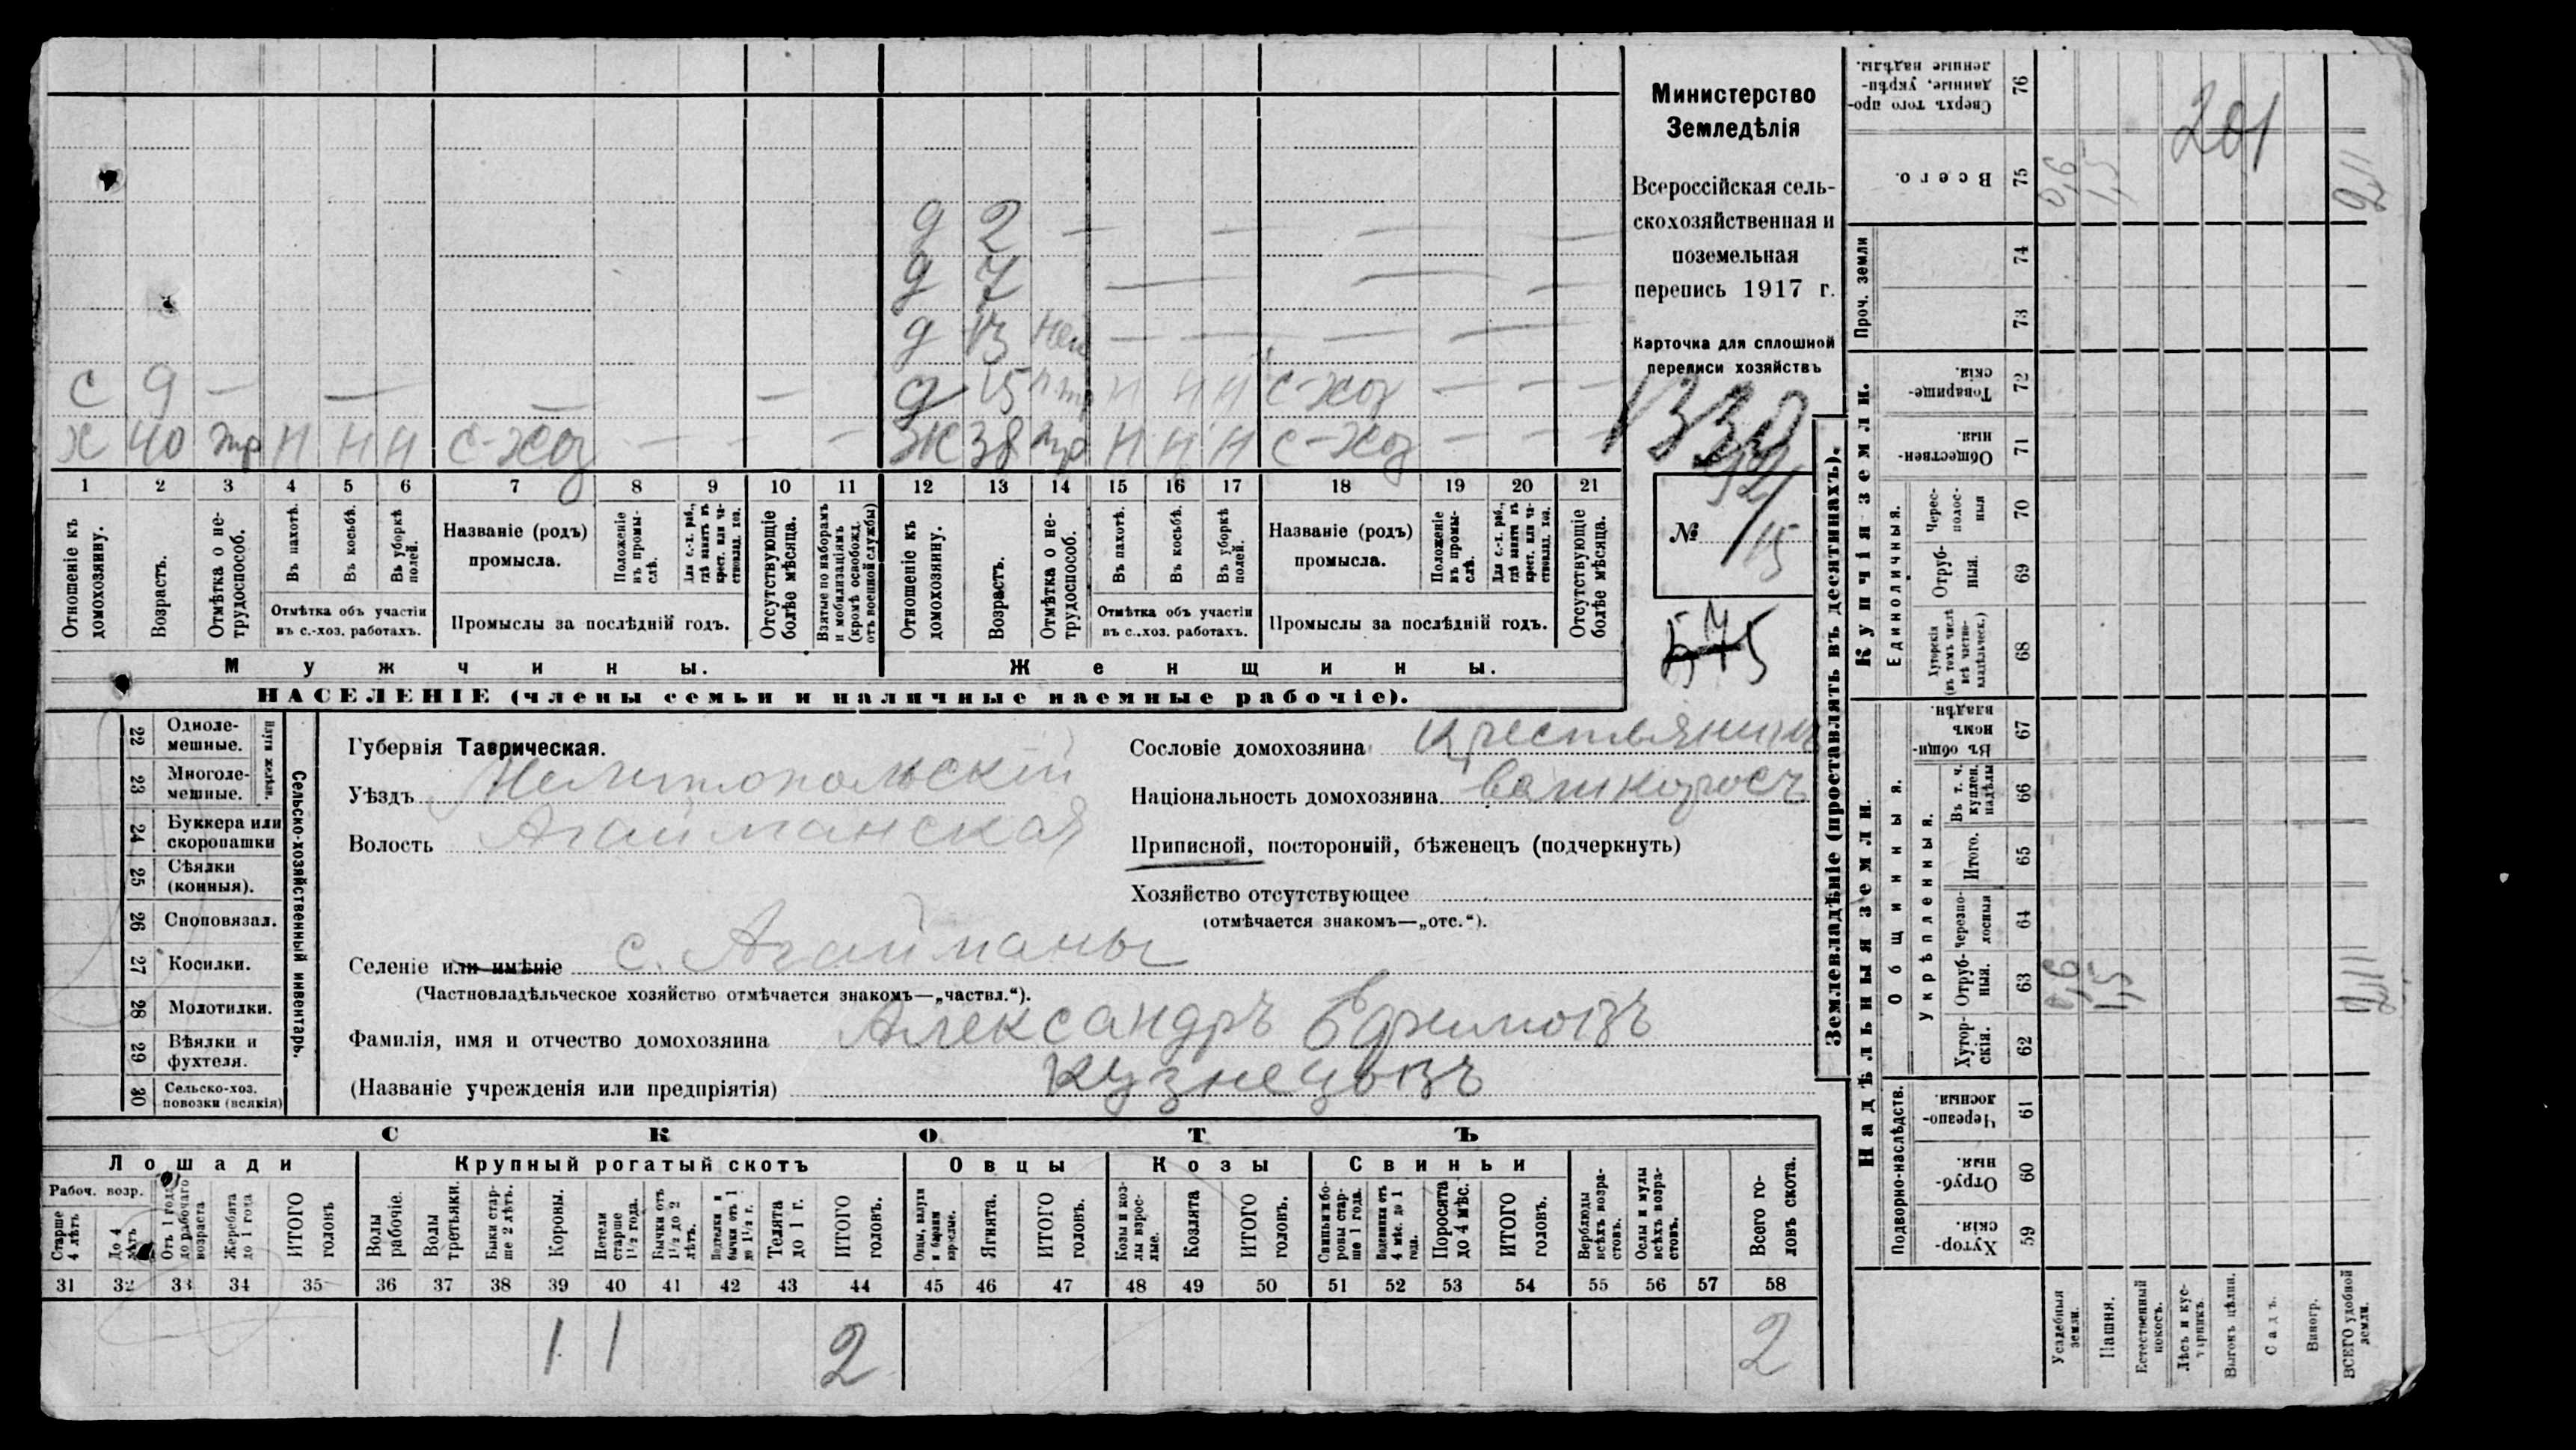 Министерство
Земледѣлія
Всероссійская сель-
скохозяйственная и
поземельная
перепись 1917 г.
Карточка для сплошной
переписи хозяйствъ
1330
№ 52/15
д 2 — — — —
д 7 — — —
д 13 — — — —
с 9 — — — — д 15 н н н с-хоз — — —
х 40 тр н н н с-хоз — — — ж 38 тр н н н с-хоз — — —
1 2 3 4 5 6 7 8 9 10 11 12 13 14 15 16 17 18 19 20 21
Отношеніе къ домохозяину.
Возрастъ.
Отмѣтка о не-трудоспособ.
Въ пахотѣ.
Въ косьбѣ.
Въ уборкѣ полей.
Отмѣтка объ участіи
въ с.-хоз. работахъ.
Названіе (родъ)
промысла.
Положеніе въ промы-слѣ.
Для с.-х. раб., гдѣ занятъ въ крест. или ча-стновлад. хоз.
Промыслы за послѣдній годъ.
Отсутствующіе болѣе мѣсяца.
Взятые по наборамъ и мобилизаціямъ (кромѣ освобожд. отъ военной службы)
Отношеніе къ домохозяину.
Возрастъ.
Отмѣтка о не-трудоспособ.
Въ пахотѣ.
Въ косьбѣ.
Въ уборкѣ полей.
Отмѣтка объ участіи
въ с..хоз. работахъ.
Названіе (родъ)
промысла.
Положеніе въ промы-слѣ.
Для с.-х. раб., гдѣ занятъ въ крест. или ча-стновлад. хоз.
Промыслы за послѣдній годъ.
Отсутствующіе болѣе мѣсяца.
Мужчины. Женщины.
НАСЕЛЕНІЕ (члены семьи и наличные наемные рабочіе).
22 Одноле-мешные.
23 Многоле-мешные.
24 Буккера или скоропашки
25 Сѣялки (конныя).
26 Сноповязал.
27 Косилки.
28 Молотилки.
29 Вѣялки и фухтеля.
30 Сельско-хоз. повозки (всякія)
Сельско-хозяйственный инвентарь.
Губернія Таврическая.
Уѣздъ Мелитопольскій
Волость Агайманская
Селеніе или имѣніе с. Агайманы
(Частновладѣльческое хозяйство отмѣчается знакомъ—„частвл.“).
Фамилія, имя и отчество домохозяина Александръ Ефимовъ
(Названіе учрежденія или предпріятія) Кузнецовъ
Сословіе домохозяина крестьянинъ
Національность домохозяина великороссъ
Приписной, посторонній, бѣженецъ (подчеркнуть)
Хозяйство отсутствующее
(отмѣчается знакомъ—„отс.“).
СКОТЪ
Лошади Крупный рогатый скотъ Овцы Козы Свиньи
Рабоч. возр.
Старше 4 лѣтъ
До 4 лѣтъ
Отъ 1 года до рабочаго возраста
Жеребята до 1 года
ИТОГО головъ
Волы рабочіе.
Волы третьяки.
Быки стар-ше 2 лѣтъ.
Коровы.
Нетели старше 1½ года.
Бычки отъ 1½ до 2 лѣтъ.
Подтелки и бычки отъ 1 до 1½ г.
Телята до 1 г.
ИТОГО головъ.
Овцы, валухи и бараны взрослые.
Ягнята.
ИТОГО головъ.
Козы и коз-лы взрос-лые.
Козлята
ИТОГО головъ.
Свиньи и бо-ровы стар-ше 1 года.
Подсвинки отъ 4 мѣс. до 1 года.
Поросята до 4 мѣс.
ИТОГО головъ.
Верблюды всѣхъ возра-стовъ.
Ослы и мулы всѣхъ возра-стовъ.
Всего го-ловъ скота.
31 32 33 34 35 36 37 38 39 40 41 42 43 44 45 46 47 48 49 50 51 52 53 54 55 56 57 58
1 1 2 2
Землевладѣніе (проставлять въ десятинахъ).
Надѣльныя земли. Купчія земли. Проч. земли
Подворно-наслѣдств. Общинныя. Укрѣпленныя. Единоличныя.
59 Хутор-скія.
60 Отруб-ныя.
61 Черезпо-лосныя.
62 Хутор-скія.
63 Отруб-ныя.
64 Черезпо-лосныя
65 Итого.
66 Въ т. ч. куплен. надѣлы
67 Въ общи-номъ владѣн.
68 Хуторскія (въ томъ числѣ всѣ частно-владѣльческ.)
69 Отруб-ныя.
70 Черес-полос-ныя
71 Обществен-ныя.
72 Товарище-скія.
73
74
75 Всего.
76 Сверхъ того про-данные, укрѣп-ленные надѣлы.
Усадебныя земли.
Пашня.
Естественный покосъ.
Лѣсъ и кус-тарникъ.
Выгонъ цѣлин.
Садъ.
Виногр.
ВСЕГО удобной земли.
201